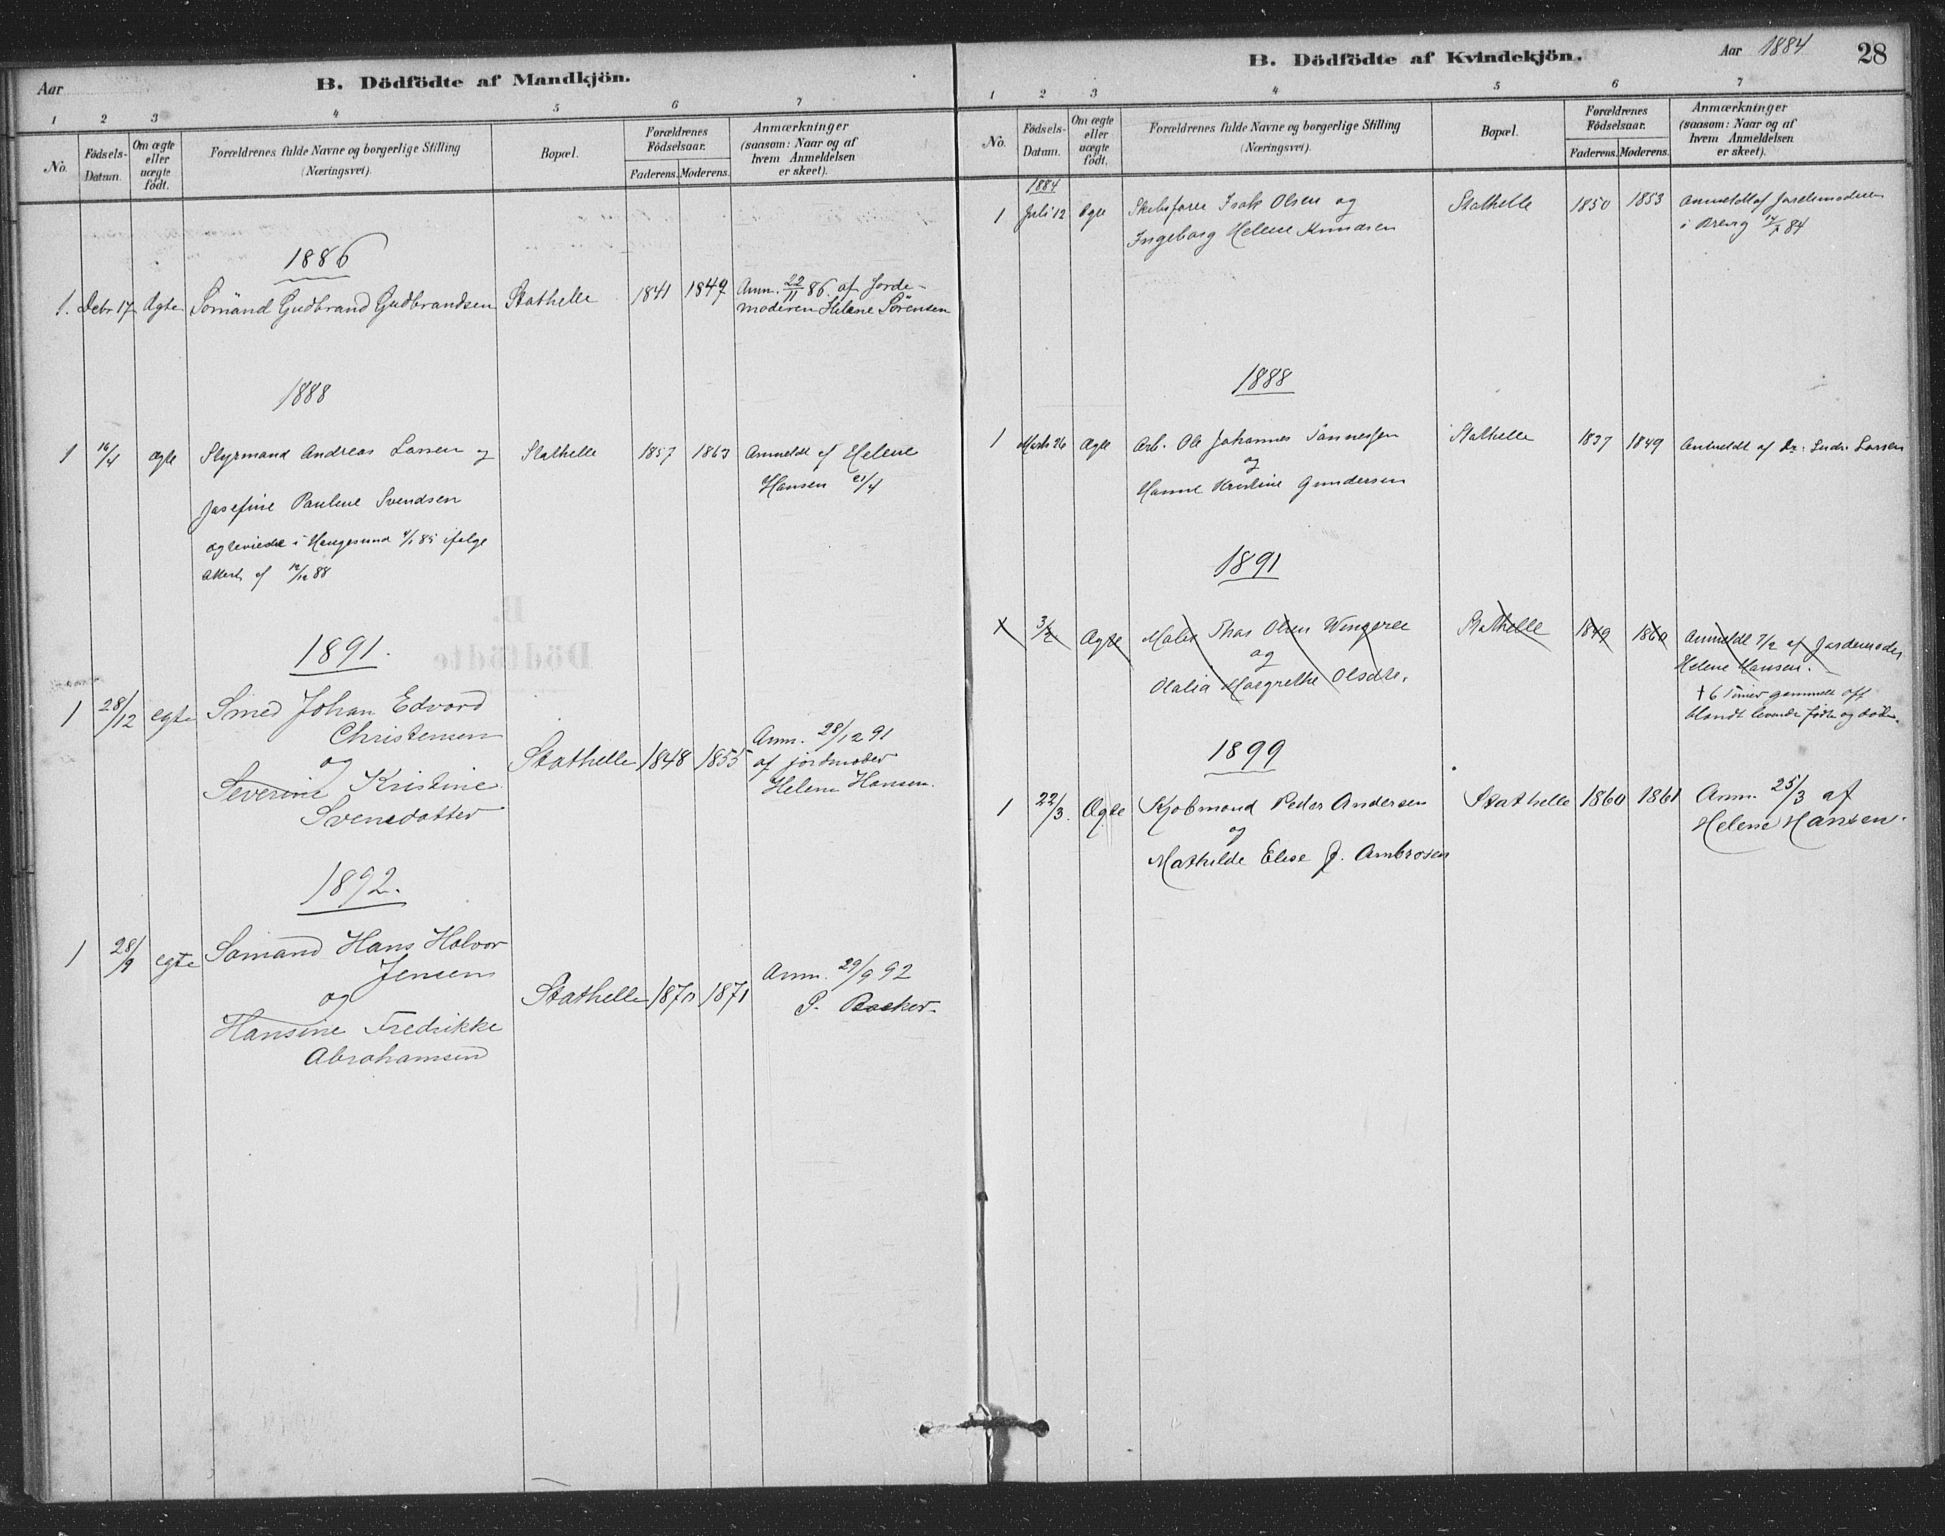 Aar
B. Dödfödte af Mandkjön.
1 2 3 4 5 6 7
No. Födsels-Datum. Om ægte eller uægte födt. Forældrenes fulde Navne og borgerlige Stilling (Næringsvei). Bopæl. Forældrenes Födselsaar. Faderens. Moderens. Anmærkninger (saasom: Naar og af hvem Anmeldelsen er skeet).
1886
1. Debr 17 Ægte Sömänd Gudbrand Gudbrandsen Stathelle 1841 1849 Anm. 22/11 86. af Jorde-
moderen Helene Sörensen
1888
1 16/4 ægte Styrmand Andreas Larsen og Stathelle 1857 1863 Anmeldt af Helene
Josefine Pauline Svendsen Hansen 21/4
ægteviede i Haugesund 4/1 85 ifølge
Attest af 12/12 88
1891.
1 28/12 egte Smed Johan Edvard
Christensen
og Stathelle 1848 1855 Anm. 28/12 91
Severine Kristine af jordmoder
Svensdatter Helene Hansen.
1892.
1 28/9 egte Sømand Hans Halvor
Jensen
og Stathelle 1870 1871 Anm. 29/9 92
Hansine Fredrikke P. Backer.
Abrahamsen
B. Dödfödte af Kvindekjön.
Aar 1884
28
1 2 3 4 5 6 7
No. Födsels-Datum. Om ægte eller uægte födt. Forældrenes fulde Navne og borgerlige Stilling (Næringsvei). Bopæl. Forældrenes Födselsaar. Faderens. Moderens. Anmærkninger (saasom: Naar og af hvem Anmeldelsen er skeet).
1884
1 Juli 12 Ægte Skibsfører Isak Olsen og Stathelle 1850 1853 Anmeldt af Jordemoderen
Ingeborg Helene Knudsen i Brevig 14/7 84
1888
1 Marts 26 Ægte Arb. Ole Johannes Tønnesen Stathelle 1837 1849 Anmeldt af Dr. Larsen
og
Hanne Kristine Gundersen
1891
3/2 Ægte Maler Thor Olsen Stathelle 1849 1860 Anmeldt 7/2 af Jordemoder
og Helene Hansen.
Olalia Margrethe Olsdtr. † 6 Timer gammel opf
blandt levende födte og döde.
1899
1 22/3. Ægte Kjøbmand Peder Andersen Stathelle 1860 1861 Anm. 25/3 af
og Helene Hansen.
Mathilde Elise J. Ambrosen